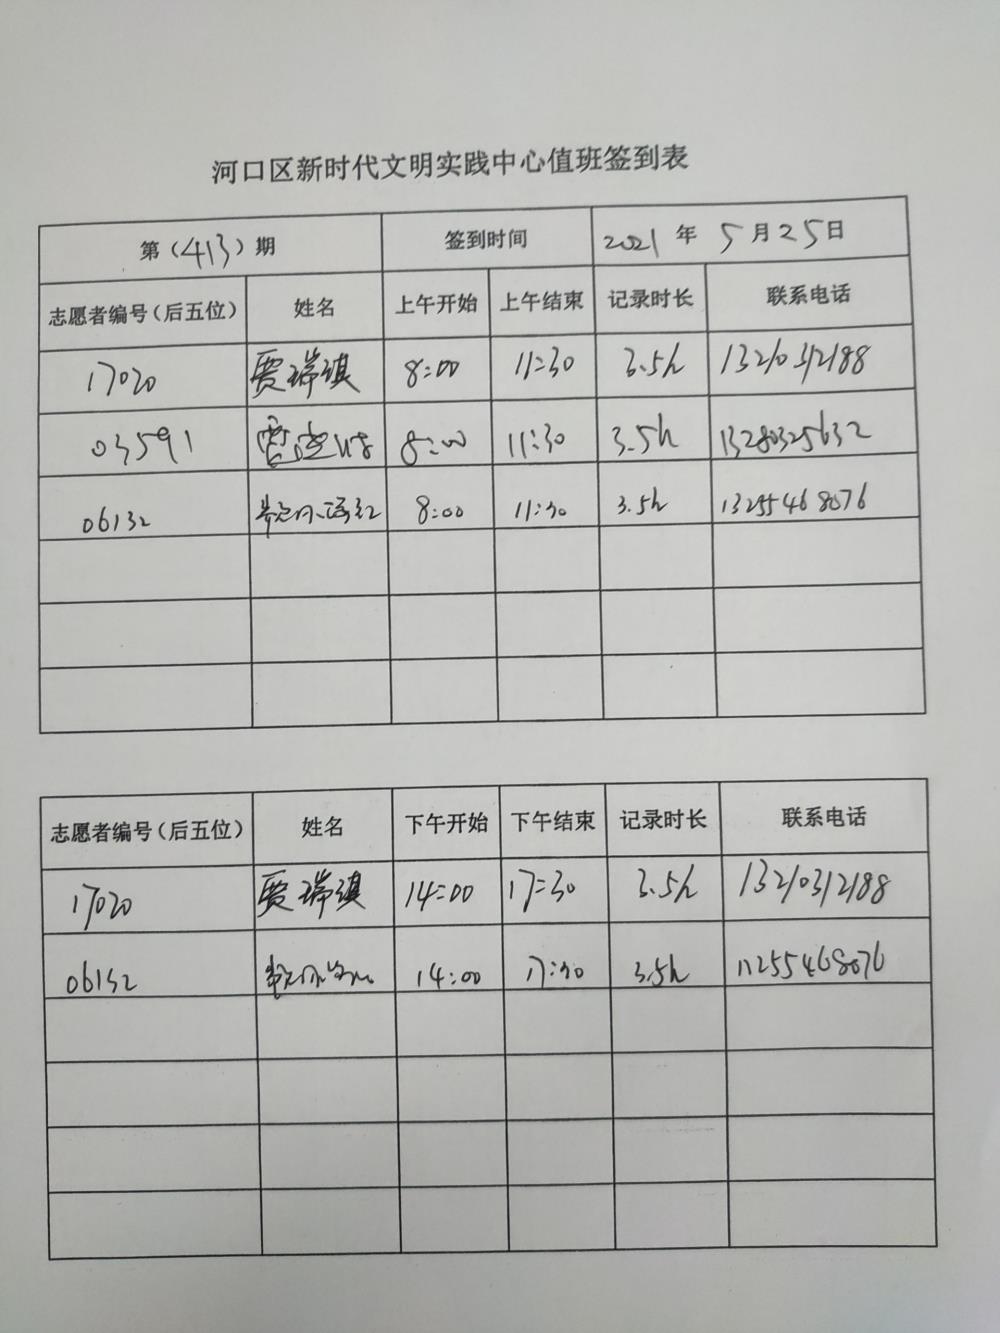 河口区新时代文明实践中心值班签到表
第（413）期 签到时间 2021年 5月25日
志愿者编号（后五位） 姓名 上午开始 上午结束 记录时长 联系电话
17020 贾瑞琪 8:00 11:30 3.5h 13210312188
03591 8:00 11:30 3.5h 13280325632
06132 8:00 11:30 3.5h 13255468076
志愿者编号（后五位） 姓名 下午开始 下午结束 记录时长 联系电话
17020 贾瑞琪 14:00 17:30 3.5h 13210312188
06132 14:00 17:30 3.5h 13255468076